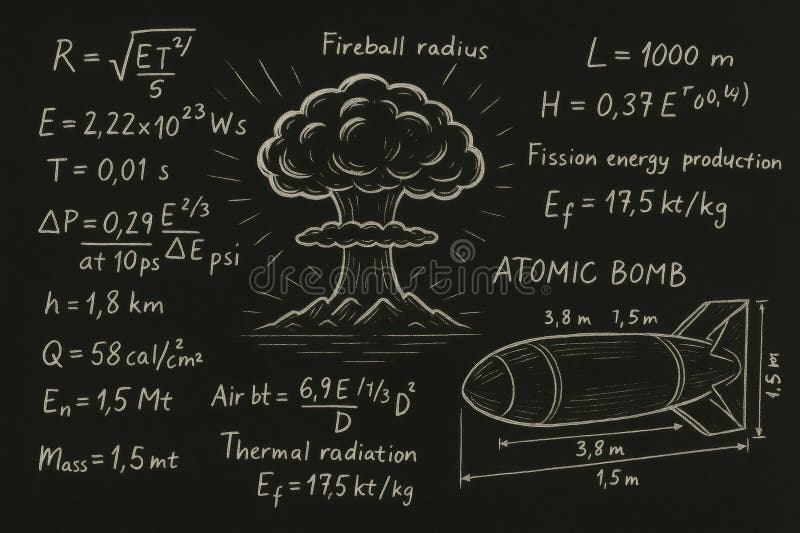 R = √ET²/ / S
Fireball radius
L = 1000 m
E = 2,22×10²³ Ws
H = 0,37 E
T = 0,01 s
Fission energy production
E_f = 17,5 kt/kg
ΔP = 0,29 E²/³
at 10 ps ΔE psi
ATOMIC BOMB
h = 1,8 km
3,8 m 1,5 m
Q = 58 cal/cm²
1.5 m
E_n = 1,5 Mt
Air bt = 6,9 E /1/3 D²
D
3,8 m
Mass = 1,5 mt
Thermal radiation
1,5 m
E_f = 17,5 kt/kg
dreamstime